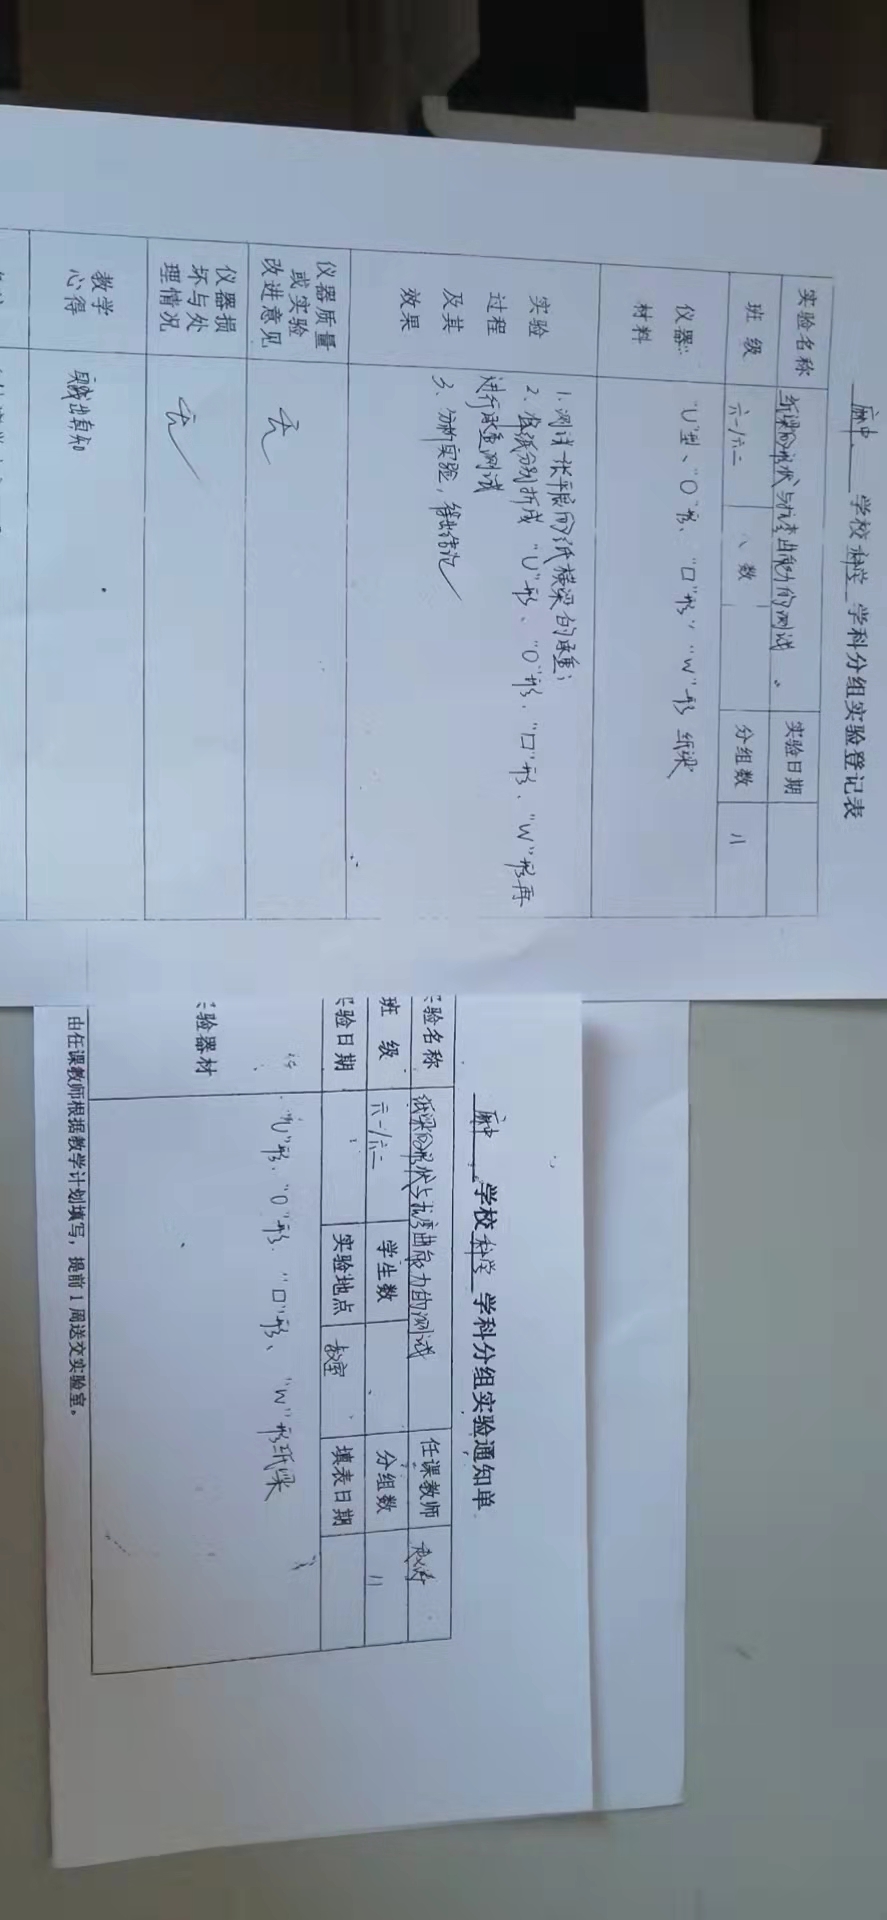 麻中 学校科学 学科分组实验登记表
实验名称 纸梁的形状与抗弯曲能力的测试。 实验日期
班 级 六一/六二 人数 分组数 八
仪器 材料 "U"型、"O"形、"口"形、"W"形 纸梁
实验 过程 及其 效果
1、测试一张平展的纸横梁的承重;
2、
分别折成"U"形、"O"形、"口"形、"W"形再
进行承重测试
3、分析实验,得出结论
仪器质量 或实验 改进意见 无
仪器损 坏与处 理情况 无
教学 心得 实践出真知
麻中 学校科学 学科分组实验通知单
实验名称 纸梁的形状与抗弯曲能力的测试 任课教师
班 级 六一/六二 学生数 分组数 八
实验日期 实验地点 教室 填表日期
实验器材 "U"形、"O"形、"口"形、"W"形纸梁
由任课教师根据教学计划填写,提前1周送交实验室。